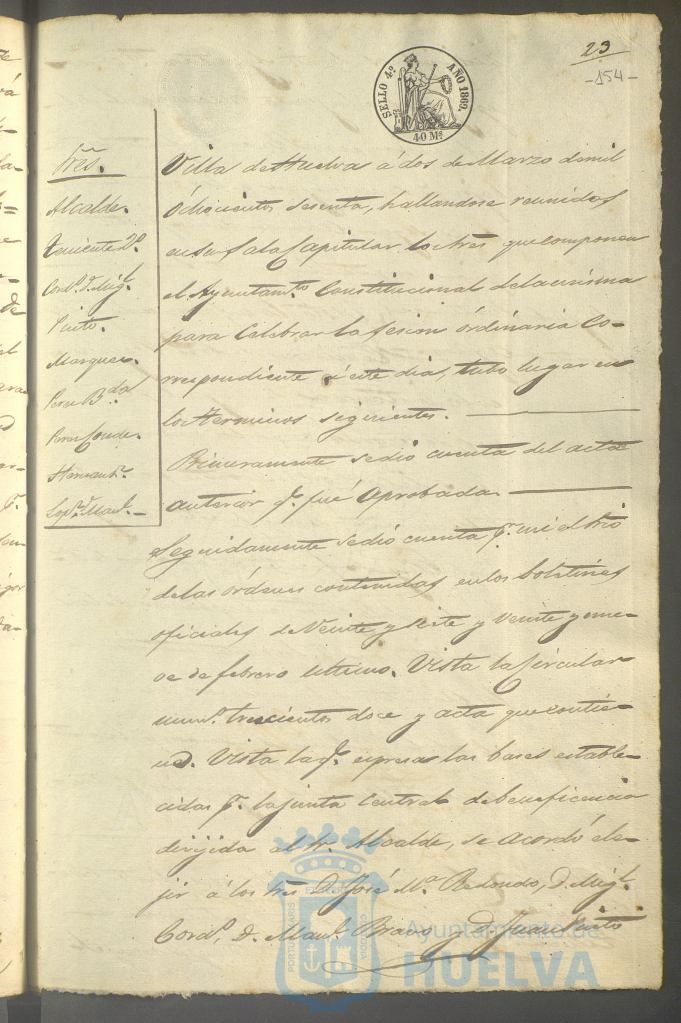 23
-154-
SELLO 4º AÑO 1860.
40 Ms
Sres.
Alcalde.
Teniente 2º
Cordº. D. Migl.
Pinto.
Marquez.
Perez Bda
Perez Conde.
Lopz. Manl.
Villa de Huelva á dos de Marzo de mil
Ochocientos sesenta, hallandose reunidos
en su Sala Capitular los Sres que componen
el Ayuntamto Constitucional de la misma
para celebrar la sesion órdinaria co-
rrespondiente á este dia, tubo lugar en
los terminos siguientes.
Primeramente se dió cuenta del acta
anterior q. fué aprobada.
Seguidamente se dió cuenta pr. mi el Srio
de las órdenes contenidas en los boletines
oficiales de Veinte y siete y veinte y nue-
ve de febrero ultimo. Vista la Circular
numo. trescientos doce y acta que contie-
ne. Vista la q. espresa las bases estable-
cidas pr. la junta Central de beneficencia
dirijida al Sr. Alcalde, se acordó ele-
jir á los Sres D. José Mª. Redondo, D. Migl.
Cordº, D. Manl. Bravo y D. Juan Pinto
Ayuntamiento de
HUELVA